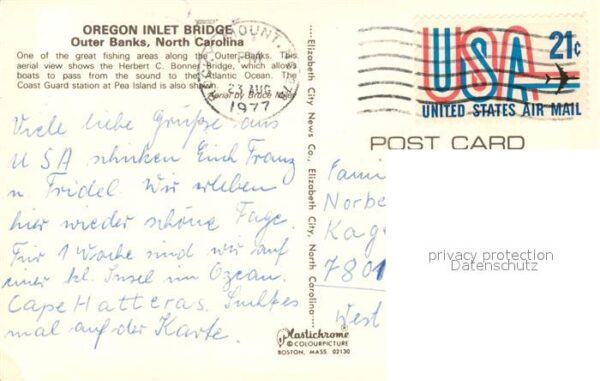 OREGON INLET BRIDGE
Outer Banks, North Carolina
One of the great fishing areas along the Outer Banks. This
aerial view shows the Herbert C. Bonner Bridge, which allows
boats to pass from the sound to the Atlantic Ocean. The
Coast Guard station at Pea Island is also shown.
Aerial by Bruce
MOUNT,
PM
23 AUG
1977
USA 21c
UNITED STATES AIR MAIL
POST CARD
Viele liebe Grüße aus
USA schicken Euch Franz
u. Fridel. Wir erleben
hier wieder schöne Tage.
Für 1 Woche sind wir auf
einer kl. Insel im Ozean.
Cape Hatteras. Suchtes
mal auf der Karte.
Elizabeth City News Co., Elizabeth City, North Carolina
Fami
Norbe
Kag
7801
West
privacy protection
Datenschutz
Plastichrome
© COLOURPICTURE
BOSTON, MASS. 02130